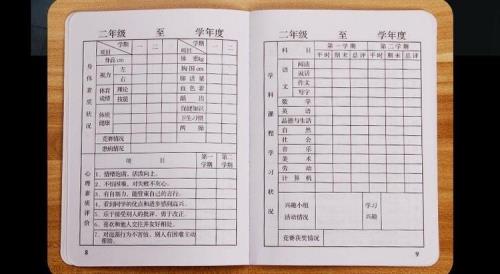 二年级 至 学年度
项目 学期 一 二 项目 学期 一 二
身体素质状况
身高cm 体重kg
视力 左 胸围cm
右 肺活量
体育成绩 理论 血色素
技能 龋齿
体质健康 保健知识
卫生习惯
两操
竞赛情况
患病情况
心理素质评价
项目 第一学期 第二学期
1、情绪饱满，活泼向上。
2、不怕困难，对失败不灰心。
3、有自制力，能管束自己的言行。
4、看到同学的优点和进步感到高兴。
5、乐于接受别人的批评，勇于改正。
6、喜欢和他人交往并友好相处。
7、对远源行为不害怕，别人有困难主动相助。
8
二年级 至 学年度
学科课程学习状况
科目 第一学期 第二学期
平时 期末 总评 平时 期末 总评
语文 阅读
说话
作文
写字
数学
英语
品德与生活
自然
社会
音乐
美术
劳动
计算机
兴趣小组活动情况 学习兴趣
竞赛获奖情况
9